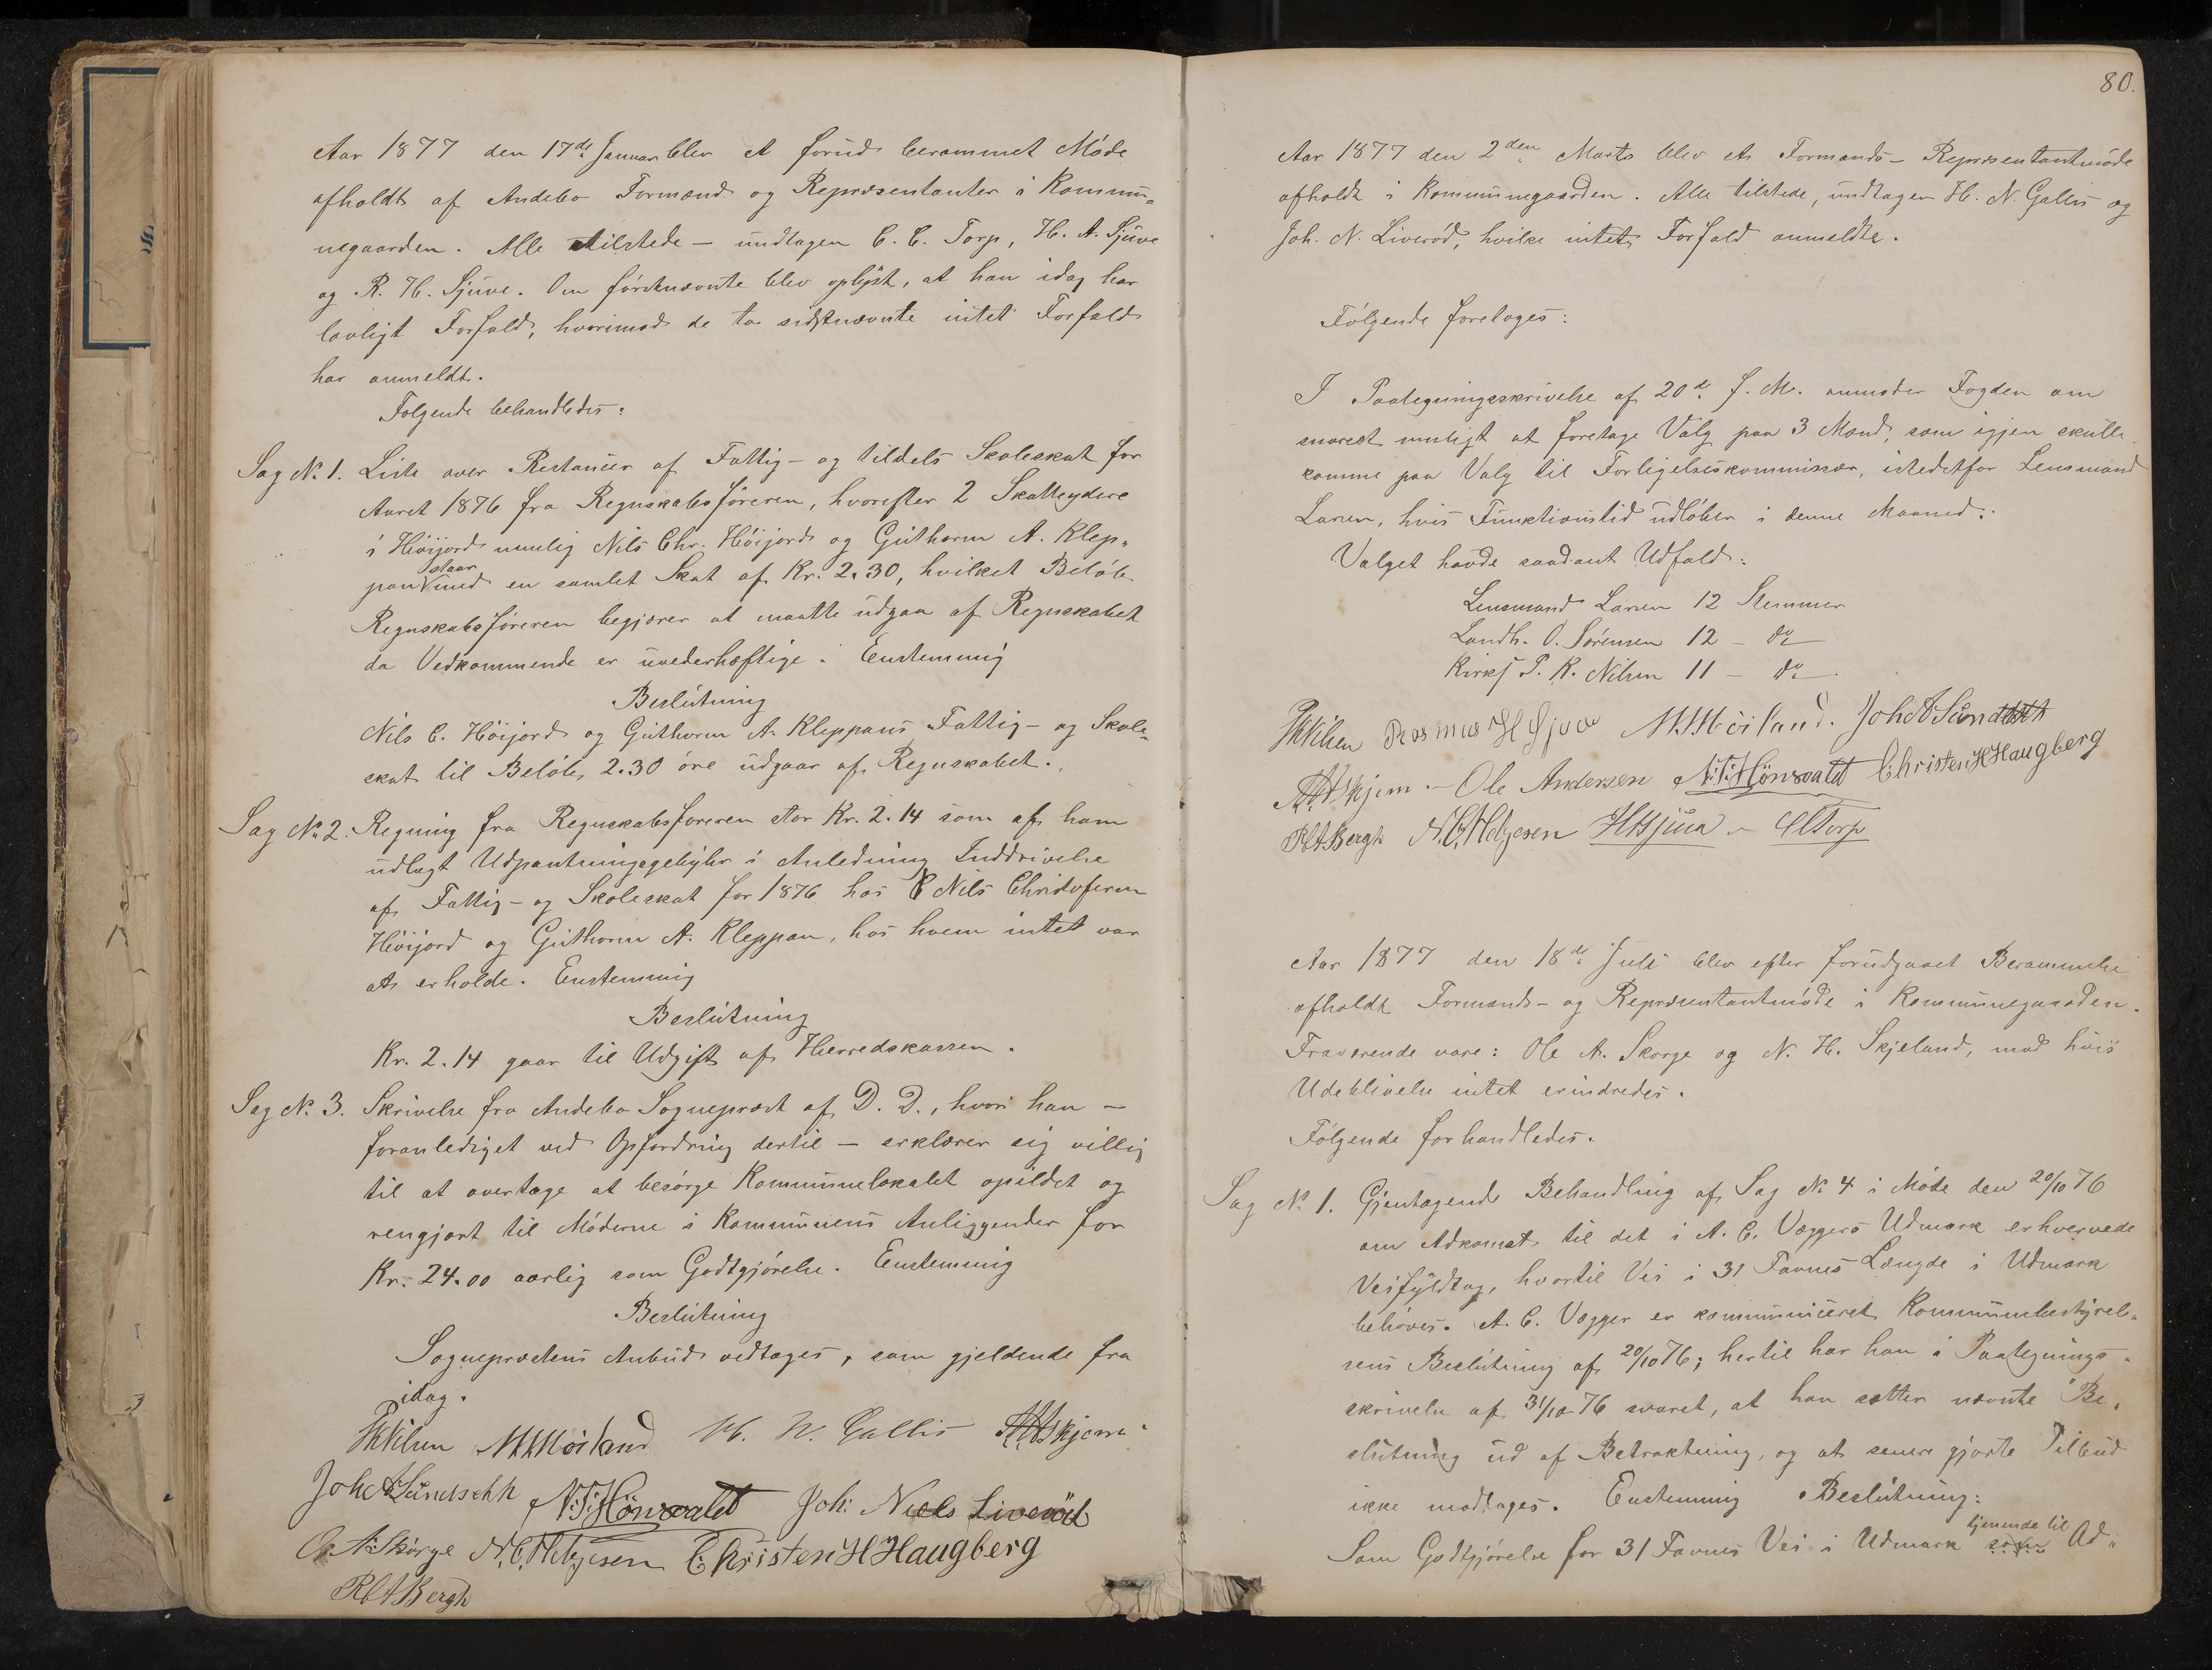 Aar 1877 den 17de Januar blev et forud berammet Møde
afholdt af Andebo Formænd og Repræsentanter i Kommu„
negaarden. Alle tilstede – undtagen C. C. Torp, H. A. Sjuve
og R. H. Sjuve. Om førstnævnte blev oplyst, at han idag har
lovligt Forfald, hvorimod de to sidstnævnte intet Forfald
har anmeldt.
Følgende behandledes:
Sag No. 1. Liste over Restancer af Fattig- og tildels Skoleskat for
Aaret 1876 fra Regnskabsføreren, hvorefter 2 Skatteydere
i Høijord nemlig Nils Chr. Høijord og Guthorm A. Klep„
staar
pan med en samlet Skat af Kr. 2.30, hvilket Beløb
Regnskabsføreren begjærer at maatte udgaa af Regnskabet
da Vedkommende er uvederhæftige. Enstemmig
Beslutning
Nils C. Høijord og Guthorm A. Kleppans Fattig- og Skole„
skat til Beløb 2.30 øre udgaar af Regnskabet.
Sag No. 2. Regning fra Regnskabsføreren stor Kr. 2.14 som af ham
udlagt Udpantningsgebyhr i Anledning Inddrivelse
af Fattig- og Skoleskat for 1876 hos Nils Christofersen
Høijord og Guthorm A. Kleppan, hos hvem intet var
at erholde. Enstemmig
Beslutning
Kr. 2.14 gaar til Udgift af Herredskassen.
Sag No. 3. Skrivelse fra Andebo Sognepræst af D. D., hvori han –
foranlediget ved Opfordring dertil – erklærer sig villig
til at overtage at besørge Kommunelokalet opildet og
rengjort til Møderne i Kommunens Anliggender for
Kr. 24.00 aarlig som Godtgjørelse. Enstemmig
Beslutning
Sognepræstens Anbud vedtages, som gjeldende fra
idag.
PRNilsen M.M.Møiland H. N. Gallis Askjem
Joh A Sundseth N.T.Hönsvalet Joh: Niels Liveröd
O. A. Skorge N.C.Helgesen Christen H Haugberg
R A Bergh
80.
Aar 1877 den 2den Marts blev et Formands- Repræsentantmøde
afholdt i Kommunegaarden. Alle tilstede, undtagen H. N. Gallis og
Joh. N. Liverød, hvilke intet Forfald anmeldte.
Følgende foretoges:
I Paategningsskrivelse af 20de f. M. anmoder Fogden om
snarest muligt at foretage Valg paa 3 Mænd, som igjen skulle
komme paa Valg til Forligelseskommissær, istedetfor Lensmand
Larsen, hvis Funktionstid udløber i denne Maaned.
Valget havde saadant Udfald:
Lensmand Larsen 12 Stemmer
Landh. O. Sørensen 12 – do
Kirks. P. R. Nilsen 11 – do
PRNilsen Rasmus H Sjuve M.M.Møiland. Joh A Sundseth
Askjem – Ole Andersen N.T.Hönsvalet Christen H Haugberg
R A Bergh N.C.Helgesen H A Sjuva – C C Torp
Aar 1877 den 18de Juli blev efter forudgaaet Berammelse
afholdt Formands- og Repræsentantmøde i Kommunegaarden.
Fraværende vare: Ole A. Skorge og N. H. Skjeland, mod hvis
Udeblivelse intet erindredes.
Følgende forhandledes.
Sag No. 1. Gjentagende Behandling af Sag No 4 i Møde den 20/10 76
om Adkomst til det i A. C. Væggers Udmark erhvervede
Veifyldtag, hvortil Vei i 31 Favnes Længde i Udmark
behøves. A. C. Vegger er kommuniceret Kommunebestyrel„
sens Beslutning af 20/10 76; hertil har han i Paategnings„
skrivelse af 31/10 76 svaret, at han sætter nævnte Be„
slutning ud af Betraktning, og at senere gjorte Tilbud
ikke modtages. Enstemmig Beslutning:
tjenende til
Som Godtgjørelse for 31 Favnes Vei i Udmark som Ad„